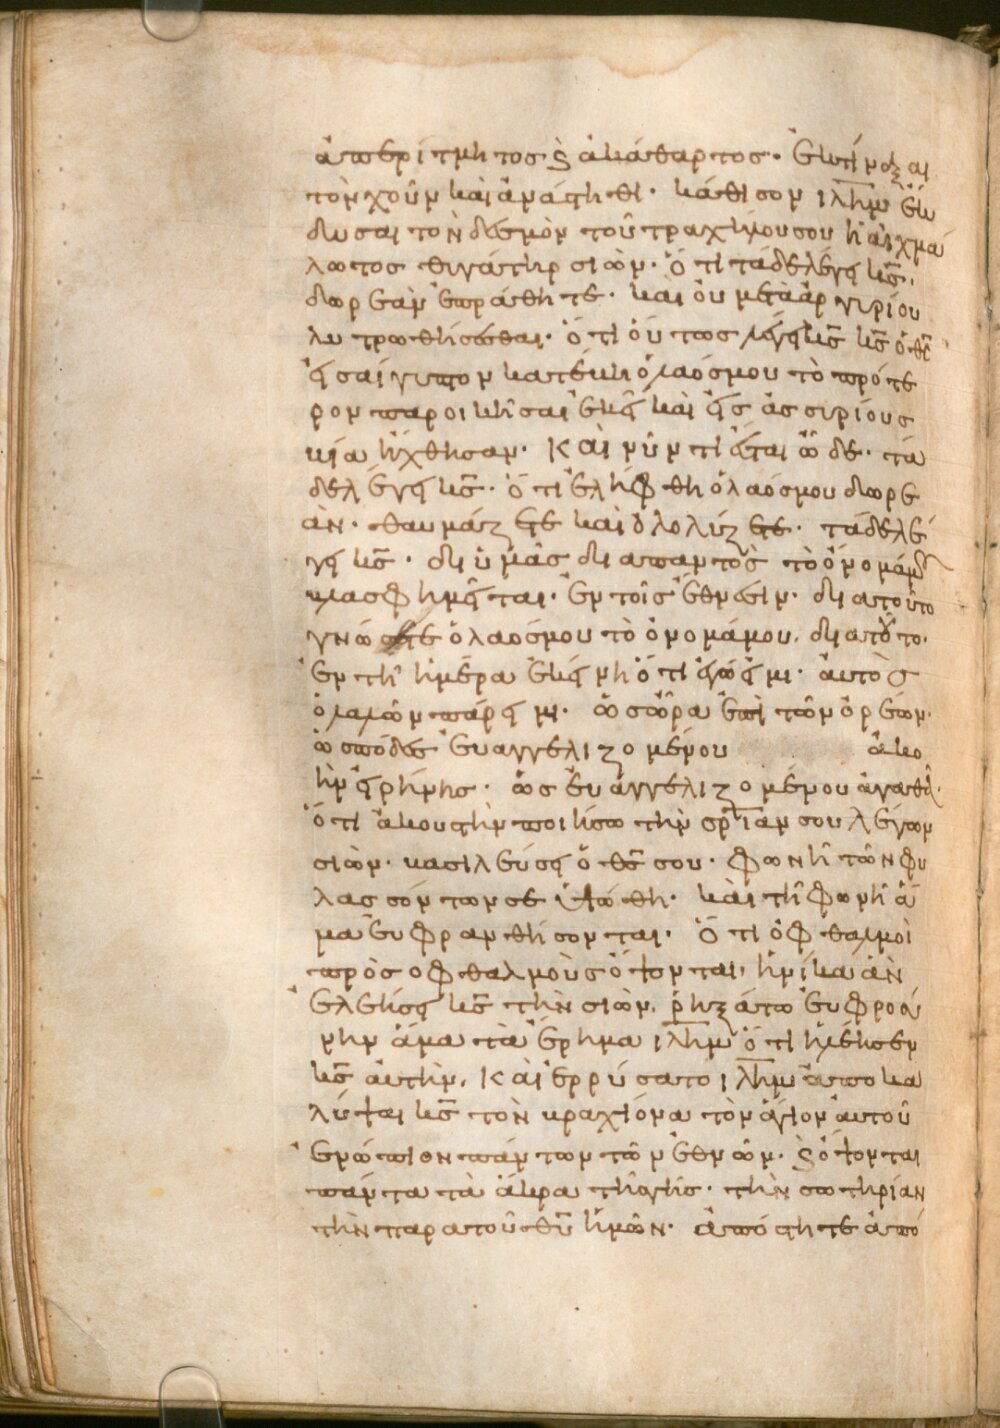 ἀπερίτμητος ϗ ἀκάθαρτος· ἐκτίναξαι
τὸν χοῦν καὶ ἀνάστηθι· κάθισον ιλημ ἔκ
δυσαι τὸν δεσμὸν τοῦ τραχήλου σου ἡ αἰχμά
λωτος θυγάτηρ σιών· ὅτι τάδε λέγει κς̄·
δωρεὰν ἐπράθητε· καὶ οὐ μετὰ ἀργυρίου
λυτρωθήσεσθαι· ὅτι οὕτως λέγει κς̄ κς̄ ὁ θς̄
εἰς αἴγυπτον κατέβη ὁ λαός μου τὸ πρότε
ρον παροικῆσαι ἐκεῖ καὶ εἰς ἀσσυρίους
βία ἤχθησαν· καὶ νῦν τί ἐσται ὧδε· τά
δε λέγει κς̄· ὅτι ἐλήφθη ὁ λαός μου δωρε
άν· θαυμάζετε καὶ ὀλολύζετε· τάδε λέ
γει κς̄· δι ὑμᾶς διαπαντὸς τὸ ὄνομά μου
βλασφημεῖται· ἐν τοῖς ἔθνεσιν· διατοῦτο
γνώσεται ὁ λαός μου τὸ ὄνομά μου· διατοῦτο·
ἐν τῆ ἡμέρα ἐκείνη ὅτι ἐγώ εἰμι· αὐτὸς
ὁ λαλῶν πάρειμι· ὡς ὥρα ἐπὶ τῶν ὀρέων·
ὡς πόδες εὐαγγελιζομένου ἀκο
ὴν εἰρήνης· ὡς εὐαγγελιζομένου ἀγαθά·
ὅτι ἀκουστὴν ποιήσω τὴν σριαν σου λέγων
σιών· βασιλεύσει ὁ θς̄ σου· φωνὴ τῶν φυ
λασσόντων σε ὑψώθη· καὶ τῆ φωνῆ ἅ
μα εὐφρανθήσονται· ὅτι ὀφθαλμοὶ
πρὸς ὀφθαλμοὺς ὄψονται, ἡνίκα ἂν
ἐλεήσει κς̄ τὴν σιών, ῥηξάτω εὐφροσύ
νην ἅμα τὰ ἔρημα ιλημ ὅτι ἠλέησεν
κς̄ αὐτήν, καὶ ἐρρύσατο ιλημ ἀποκα
λύψαι κς̄ τὸν βραχίονα τὸν ἅγιον αὐτοῦ
ἐνώπιον πάντων τῶν ἐθνῶν· ϗ ὄψονται
πάντα τὰ ἄκρα τῆς γῆς· τὴν σωτηρίαν
τὴν παρα τοῦ θῡ ἡμῶν· ἀπόστητε ἀπό